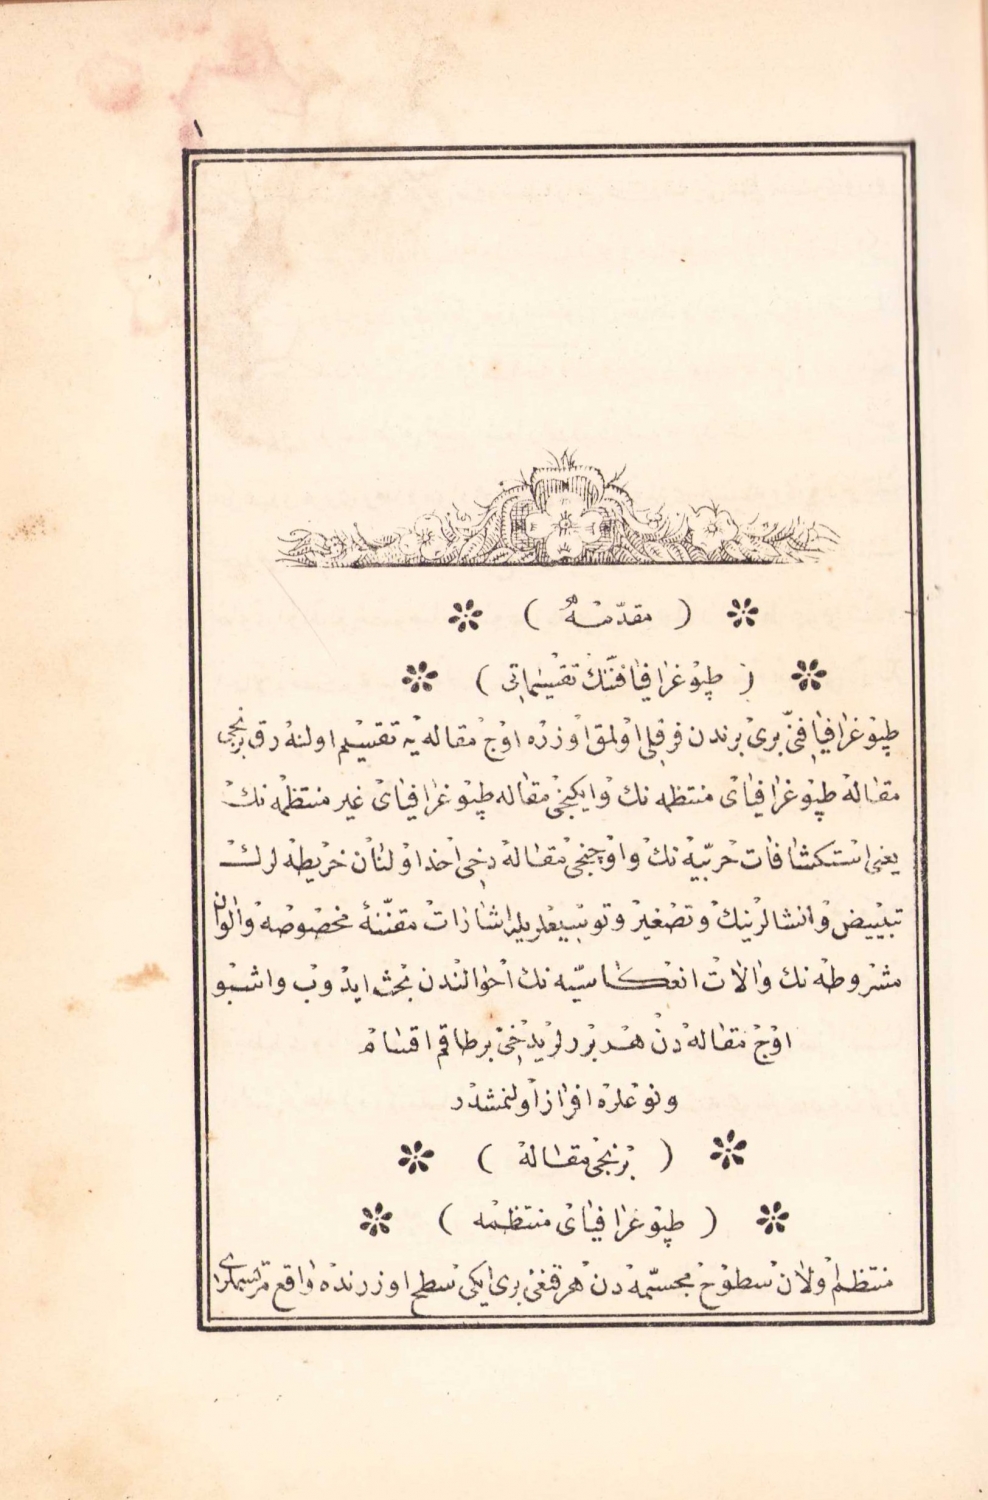 ١
( مقدّمهٔ )
( طپوغرافیا فنّنك تقسیماتی )
طپوغرافیا فنّی بری برندن فرقلی اولمق اوزره اوچ مقاله یه تقسیم اولنه رق برنجی
مقاله طپوغرافیای منتظمه نك و ایكنجی مقاله طپوغرافیای غیر منتظمه نك
یعنی استكشافات حربیّه نك و اوچنجی مقاله دخی اخذ اولنان خریطه لرك
تبییض و انشالرینك و تصغیر و توسیعلریله اشارات مقنّنهٔ مخصوصه و الوان
مشروطه نك و الات انعكاسیّه نك احوالندن بحث ایدوب و اشبو
اوچ مقاله دن هر برلری دخی بر طاقم اقسام
و نوعلره افراز اولنمشدر
( برنجی مقاله )
( طپوغرافیای منتظمه )
منتظم اولان سطوح مجسّمه دن هر قنغی بری ایكی سطح اوزرنده واقع مرتسملری